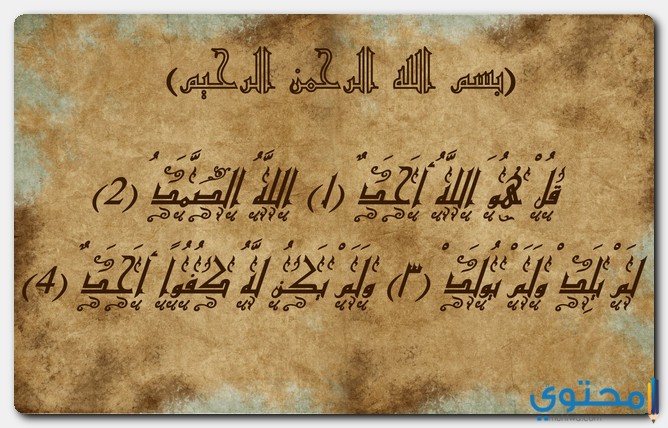 (بسم الله الرحمن الرحيم)
قُلْ هُوَ اللَّهُ أَحَدٌ (1) اللَّهُ الصَّمَدُ (2)
لَمْ يَلِدْ وَلَمْ يُولَدْ (٣) وَلَمْ يَكُنْ لَهُ كُفُوًا أَحَدٌ (4)
محتوي